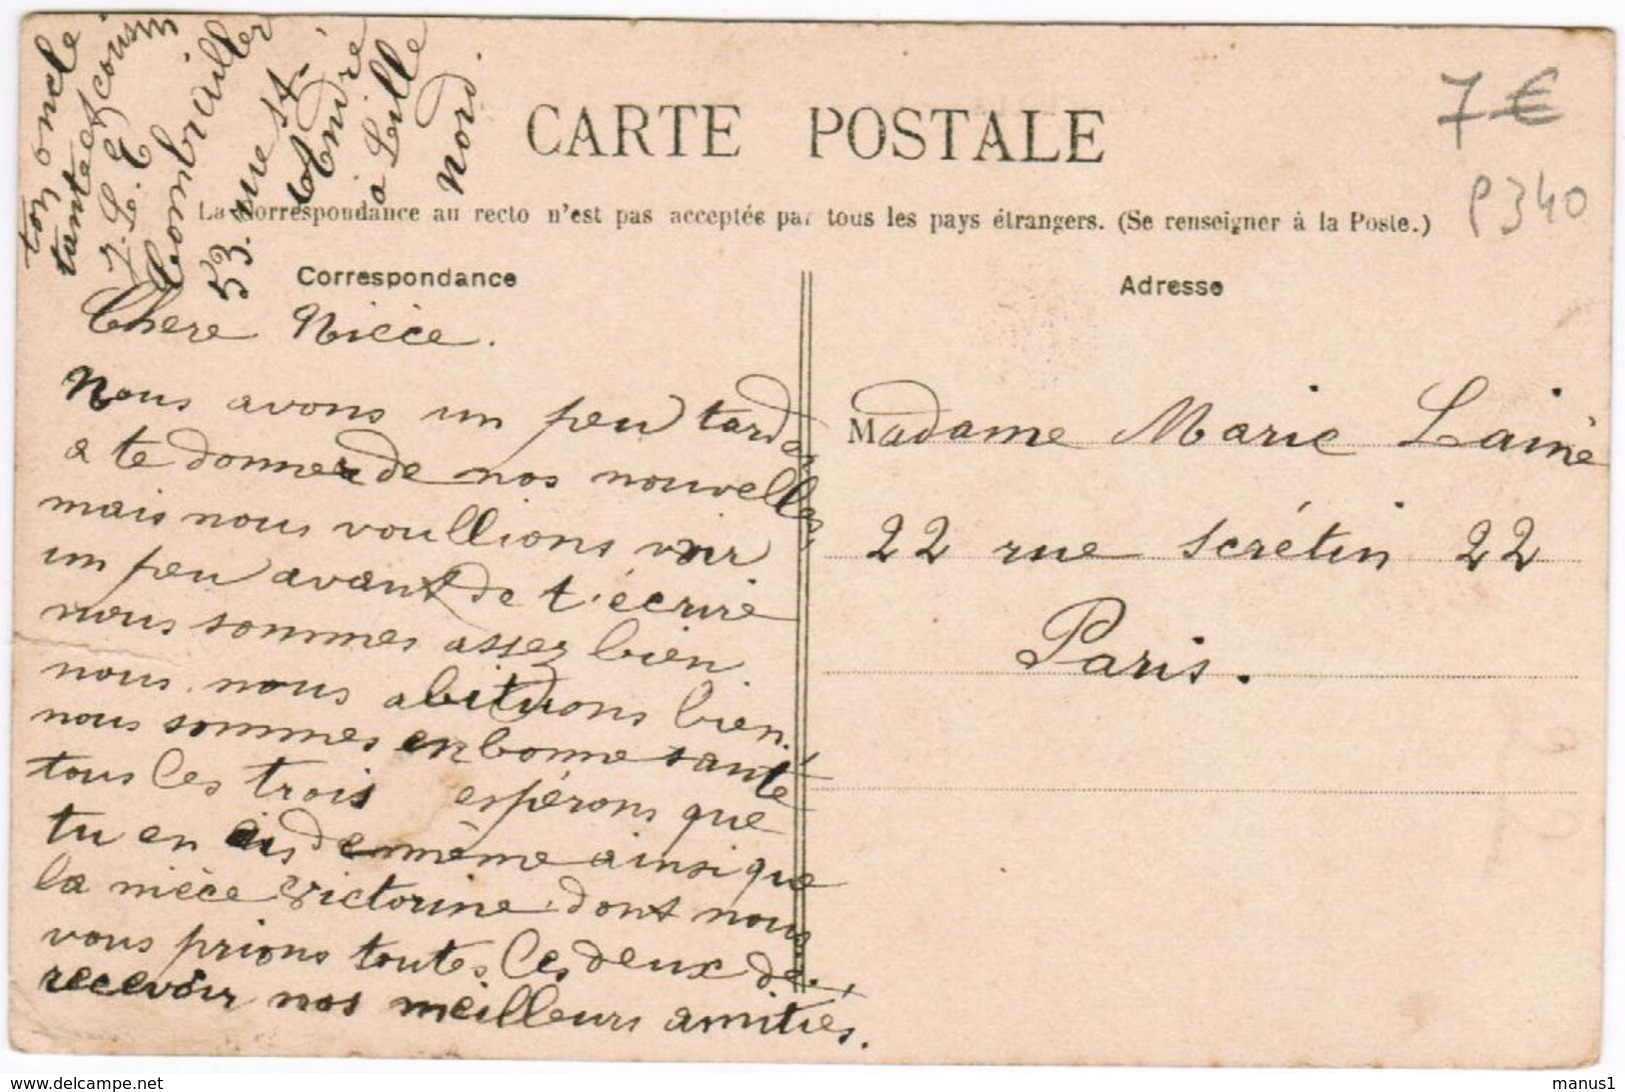 CARTE POSTALE
7 €
P340
La Correspondance au recto n'est pas acceptée par tous les pays étrangers. (Se renseigner à la Poste.)
Correspondance
Adresse
ton oncle
tante et cousin
Combrailler
53. rue St-
André
a Lille
Nord.
Chere Nièce.
Nous avons un peu tarder
a te donner de nos nouvelles
mais nous voullions voir
un peu avant de t'écrire
nous sommes assez bien
nous nous abituons bien.
nous sommes en bonne santé
tous les trois espérons que
tu en eis de même ainsi que
la nièce Victorine dont nous
vous prions toutes les deux de
recevoir nos meilleurs amitiés.
Madame Marie Lainé
22 rue Scrétin 22
Paris.
www.delcampe.net
manus1